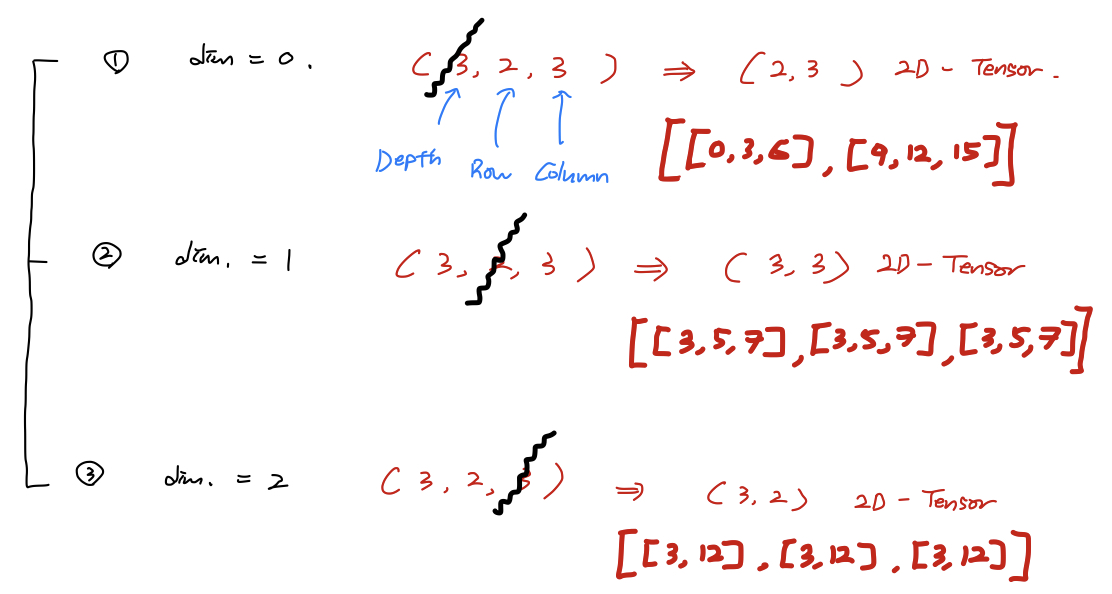 ① dim = 0. (3, 2, 3) ⇒ (2, 3) 2D - Tensor.
Depth Row Column
[[0, 3, 6], [9, 12, 15]]
② dim. = 1 (3, 2, 3) ⇒ (3, 3) 2D - Tensor
[[3, 5, 7], [3, 5, 7], [3, 5, 7]]
③ dim. = 2 (3, 2, 3) ⇒ (3, 2) 2D - Tensor
[[3, 12], [3, 12], [3, 12]]